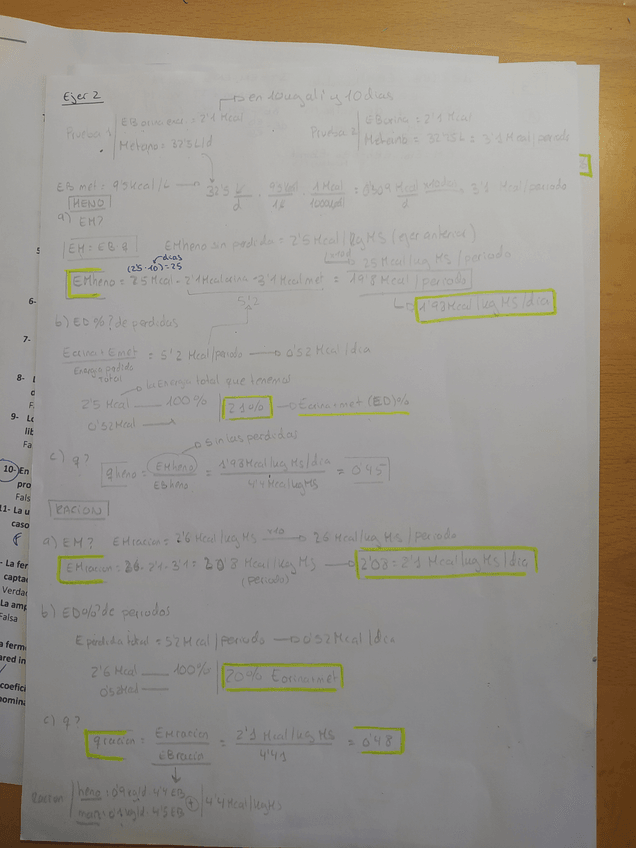 Ejer 2
en 10ug alí y 10 días
Prueba 1 | EB orina exc. = 2'1 Mcal
| Metano = 32'5 L/d
Prueba 2 | EB orina = 2'1 Mcal
| Metano = 32'5 L = 3'1 Mcal/periodo
EB met = 9'5 Kcal/L → 32'5 L/d · 9'5 Kcal/1L · 1 Mcal/1000 Kcal = 0'309 Mcal/d = 3'1 Mcal/periodo
HENO
a) EM?
EM = EB · q EM heno sin perdida = 2'5 Mcal/kg MS (ejer anterior)
25 Mcal/kg MS/periodo
días
(2'5·10)=25
EM heno = 25 Mcal - 2'1 Mcal orina - 3'1 Mcal met = 19'8 Mcal/periodo
5'2
1'98 Mcal/kg MS/día
b) ED%? de perdidas
E orina + E met = 5'2 Mcal/periodo → 0'52 Mcal/día
Energía perdida
total
la Energía total que tenemos
2'5 Mcal — 100%
21% → E orina + met (ED)%
0'52 Mcal —
Sin las perdidas
c) q?
q heno = EM heno/EB heno = 1'98 Mcal/kg MS/día/4'4 Mcal/kg MS = 0'45
RACION
a) EM? EM racion = 2'6 Mcal/kg MS → 26 Mcal/kg MS/periodo
EM racion = 26 - 2'1 - 3'1 = 20'8 Mcal/kg MS → 2'08 = 2'1 Mcal/kg MS/día
(periodo)
b) ED%? de periodos
E perdida total = 5'2 Mcal/periodo → 0'52 Mcal/día
2'6 Mcal — 100%
20% E orina+met
0'52 Mcal —
c) q?
q racion = EM racion/EB racion = 2'1 Mcal/kg MS/4'41 = 0'48
Racion | heno = 0'9 kg/d · 4'4 EB
+ | 4'4 Mcal/kg MS
| = 0'1 kg/d · 4'5 EB
6-
7-
8-
9-
10- En
pro
Fals
11- La u
caso
- La fer
capta
Verda
La amp
Falsa
a ferme
ared in
coefici
nomina